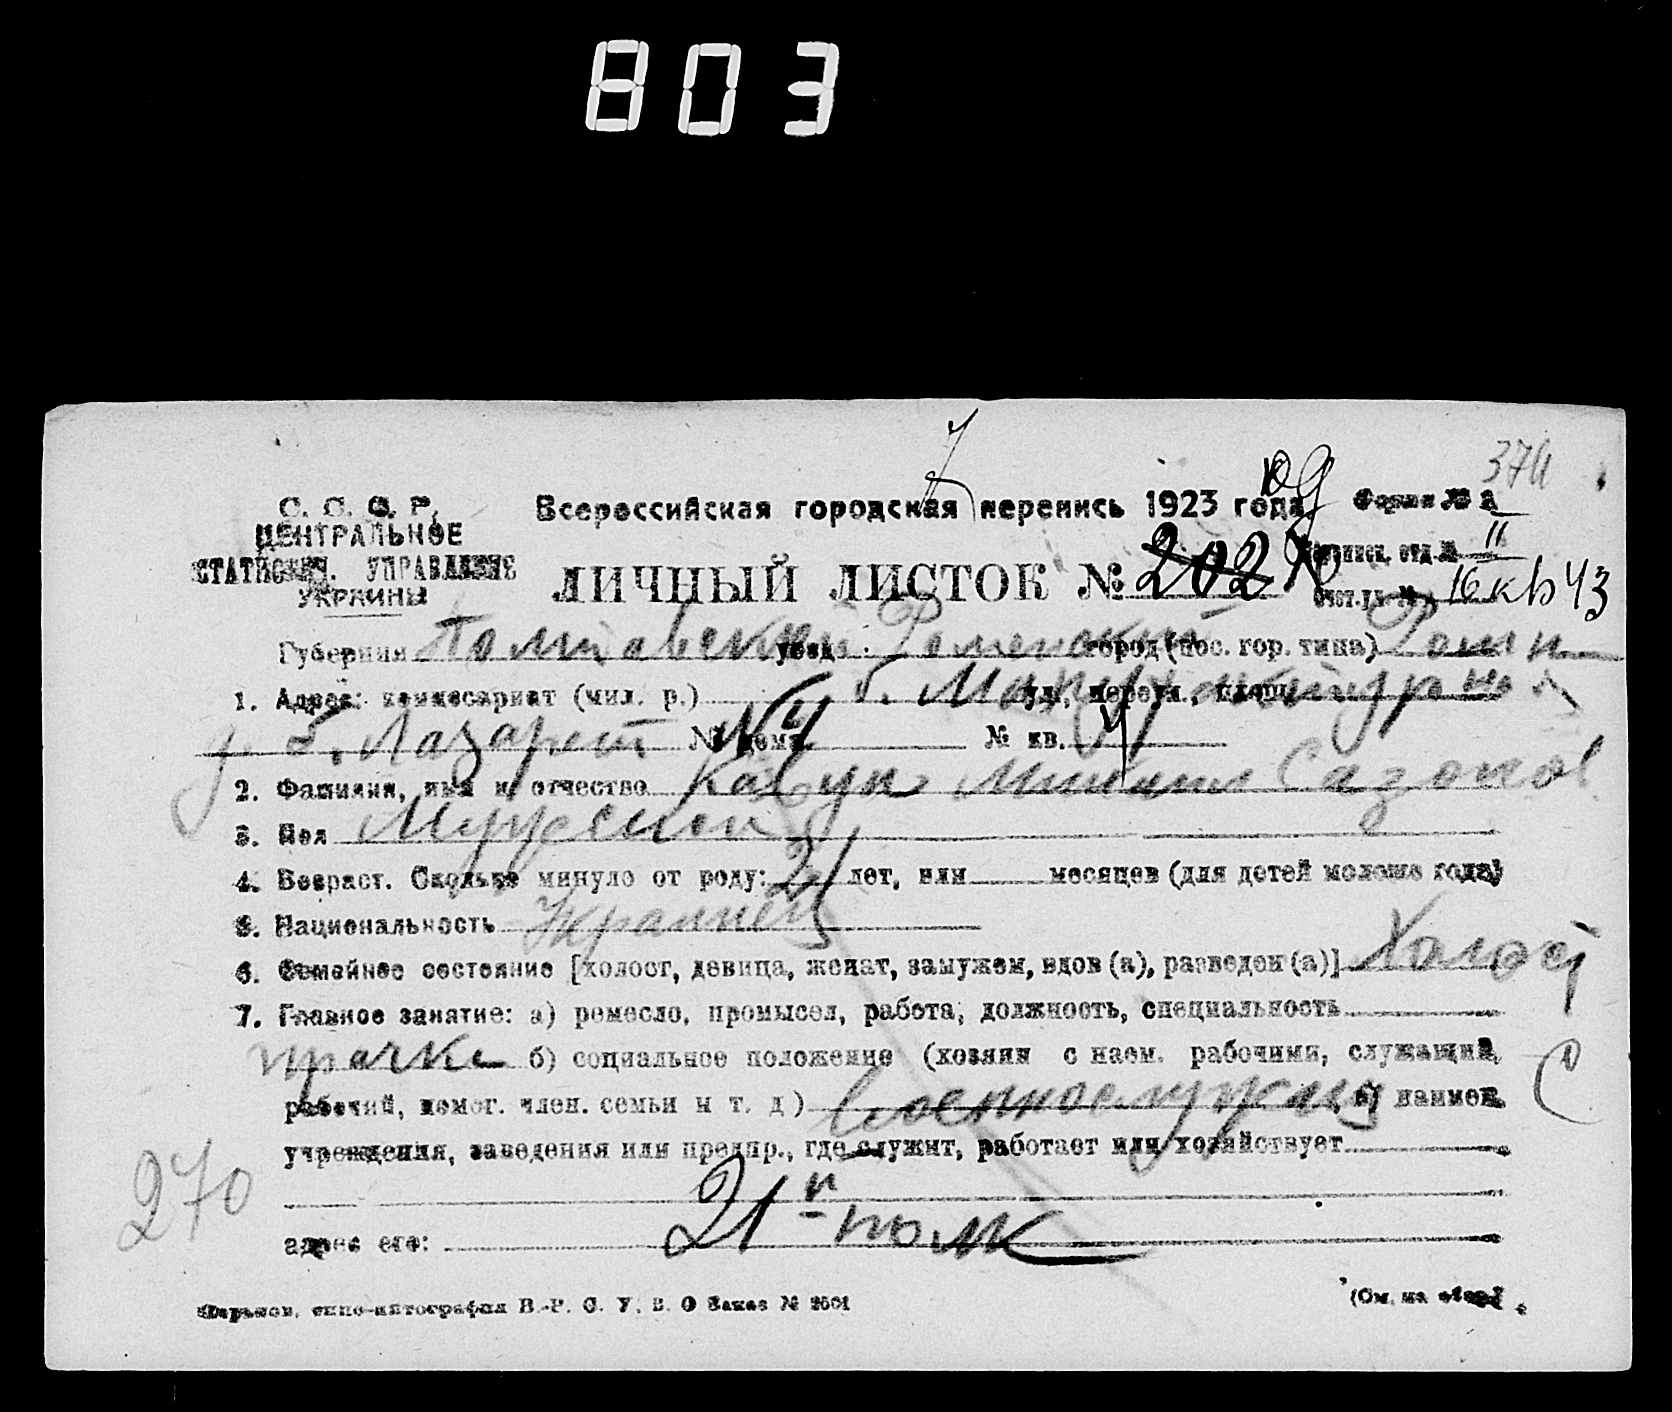 803
374
С. С. С. Р.
ЦЕНТРАЛЬНОЕ
СТАТИСТИЧ. УПРАВЛЕНИЕ
УКРАИНЫ
Всероссийская городская перепись 1923 года
Форма № 2
ЛИЧНЫЙ ЛИСТОК № 202
отд. № II
16 кв 43
Губерния Полтавская уезд: Роменский город (пос. гор. типа) Ромны
1. Адрес: комиссариат (мил. р.) ул., переул., площ.
б. Лазарет № дома № кв. 4
2. Фамилия, имя и отчество Кавун Михаил Сазонов
3. Пол Мужской
4. Возраст. Сколько минуло от роду: 21 лет, или месяцев (для детей моложе года)
5. Национальность Украинец
6. Семейное состояние [холост, девица, женат, замужем, вдов (а), разведен (а)] Холост
7. Главное занятие: а) ремесло, промысел, работа, должность, специальность
б) социальное положение (хозяин с наем. рабочими, служащий,
рабочий, помог. член. семьи и т. д) Военнослужащ в) наимен.
учреждения, заведения или предпр., где служит, работает или хозяйствует
270
адрес его: 21й полк
Харьков, типо-литография В. Р. С. У. Заказ № 2501
(См. на обор.)